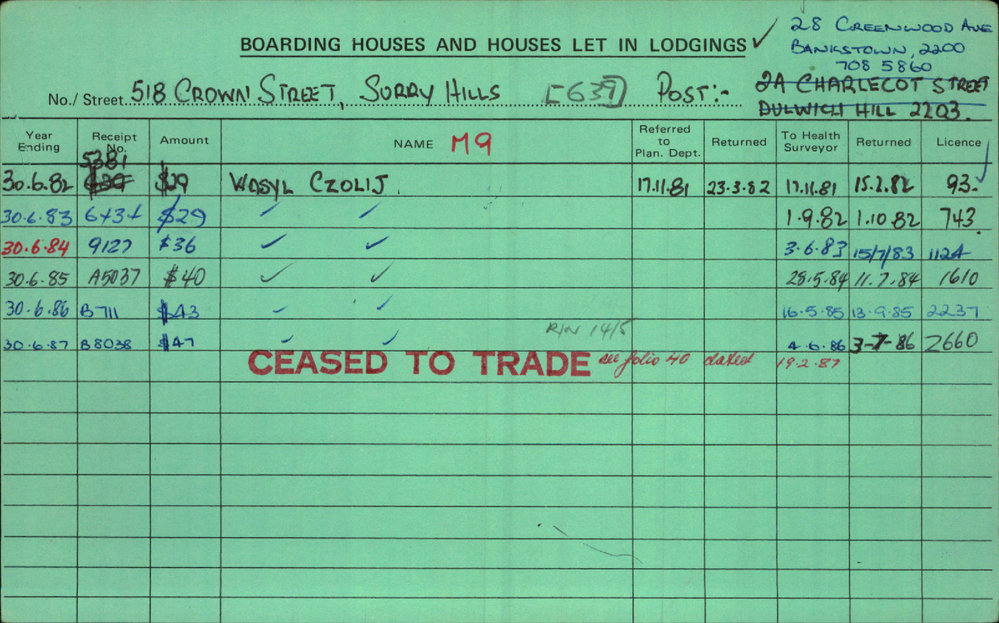 BOARDING HOUSES AND HOUSES LET IN LODGINGS ✓
28 GREENWOOD AVE
BANKSTOWN, 2200
708 5860
No./ Street 518 CROWN STREET, SURRY HILLS [639] POST:-
2A CHARLECOT STREET
DULWICH HILL 2203.
Year Ending Receipt No. Amount NAME M9 Referred to Plan. Dept. Returned To Health Surveyor Returned Licence
5381
30.6.82 $29 WASYL CZOLIJ. 17.11.81 23.3.82 17.11.81 15.2.82 93. ✓
30.6.83 6434 $29 ✓ ✓ 1.9.82 1.10.82 743.
30.6.84 9127 $36 ✓ ✓ 3.6.83 15/7/83 1124
30.6.85 A5037 $40 ✓ ✓ 28.5.84 11.7.84 1610
30.6.86 B711 $43 ✓ ✓ 16.5.85 13.9.85 2237
R/N 14/5
30.6.87 B8038 $47 ✓ ✓ 4.6.86 3-7-86 2660
CEASED TO TRADE see folio 40 dated 19.2.87